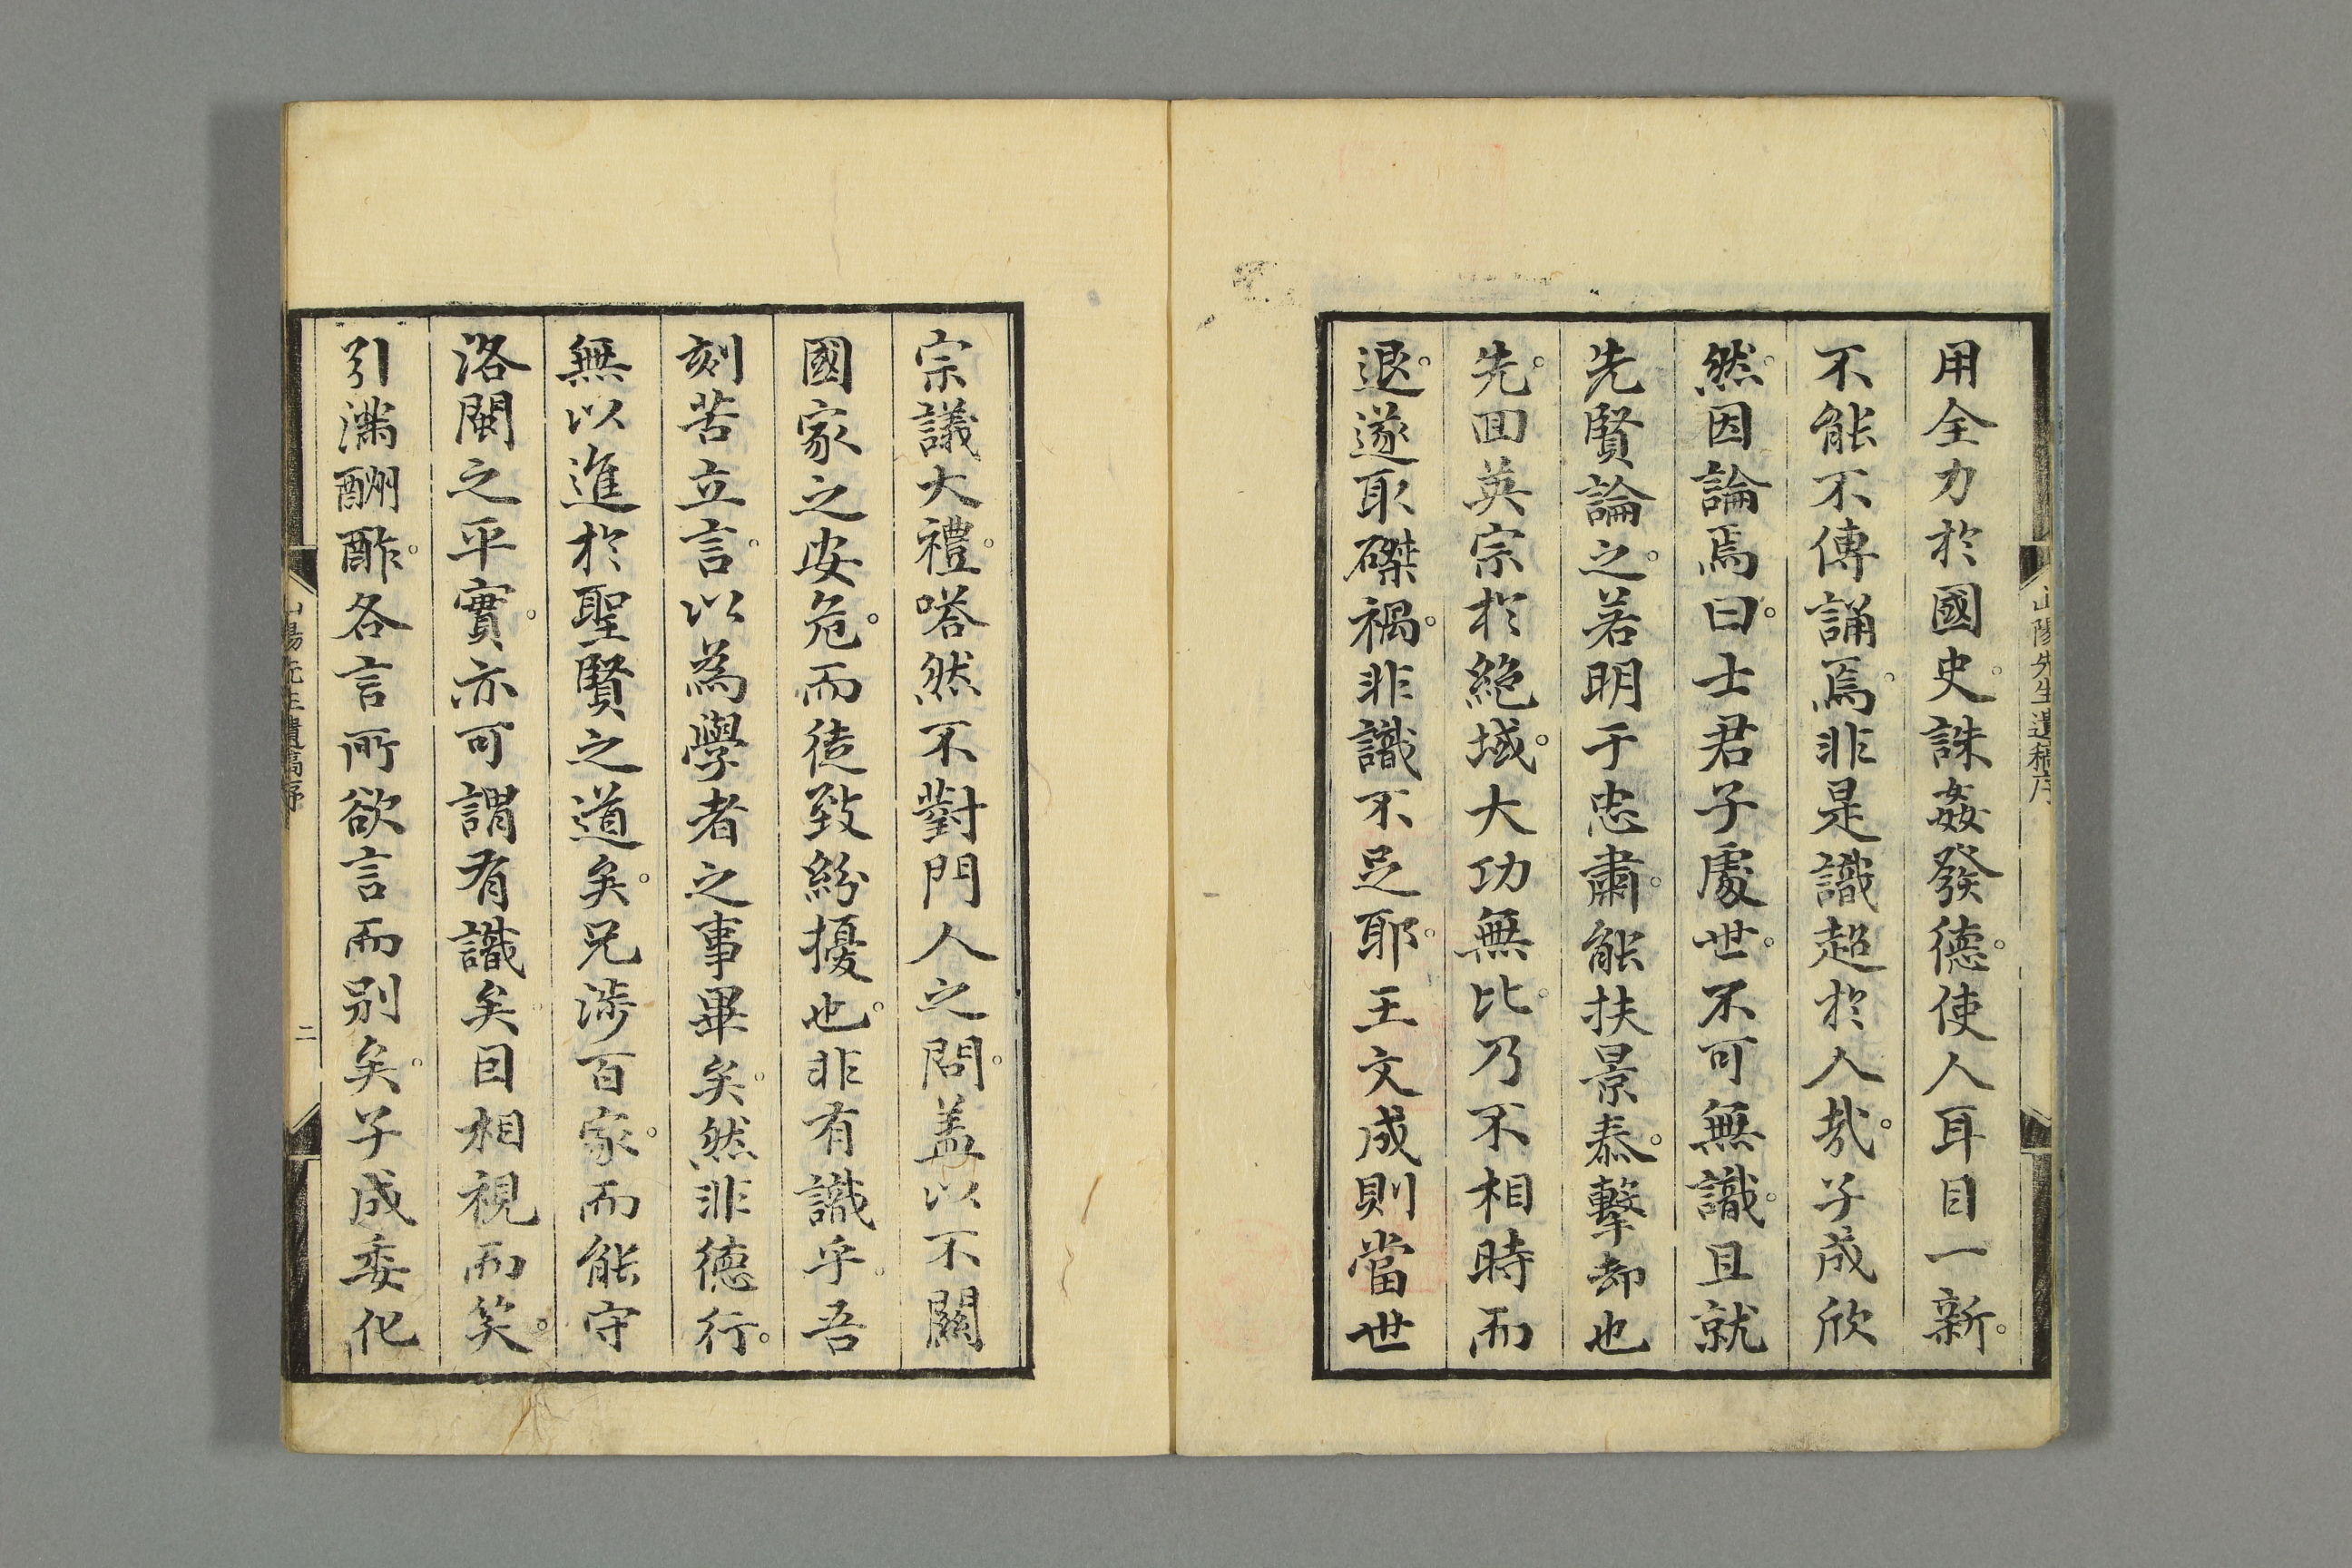 山陽先生遺稿序
用全力於國史。誅姦發德。使人耳目一新。
不能不傳誦焉。非是識超於人哉。子成欣
然。因論焉曰。士君子處世。不可無識。且就
先賢論之。若明于忠肅。能扶景泰。擊却也
先。回英宗於絶域。大功無比。乃不相時而
退。遂取磔禍。非識不足耶。王文成則當世
宗議大禮。嗒然不對門人之問。蓋以不關
國家之安危。而徒致紛擾也。非有識乎。吾
刻苦立言。以為學者之事畢矣。然非德行。
無以進於聖賢之道矣。兄涉百家。而能守
洛閩之平實。亦可謂有識矣。因相視而笑。
引滿酬酢。各言所欲言而別矣。子成委化
山陽先生遺稿序
二